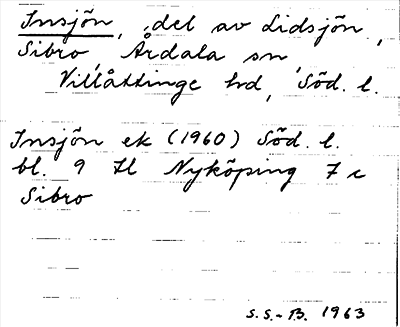 Insjön, del av Lidsjön,
Sibro, Årdala sn
Villåttinge hd, Söd. l.
Insjön ek (1960) Söd. l.
bl. 9 Il Nyköping 7 c
Sibro
S.S.-B. 1963